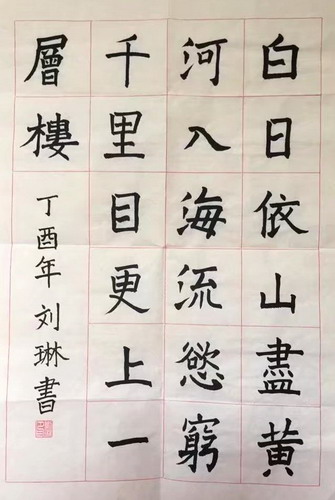 白日依山盡黃
河入海流慾窮
千里目更上一
層樓
丁酉年刘琳書